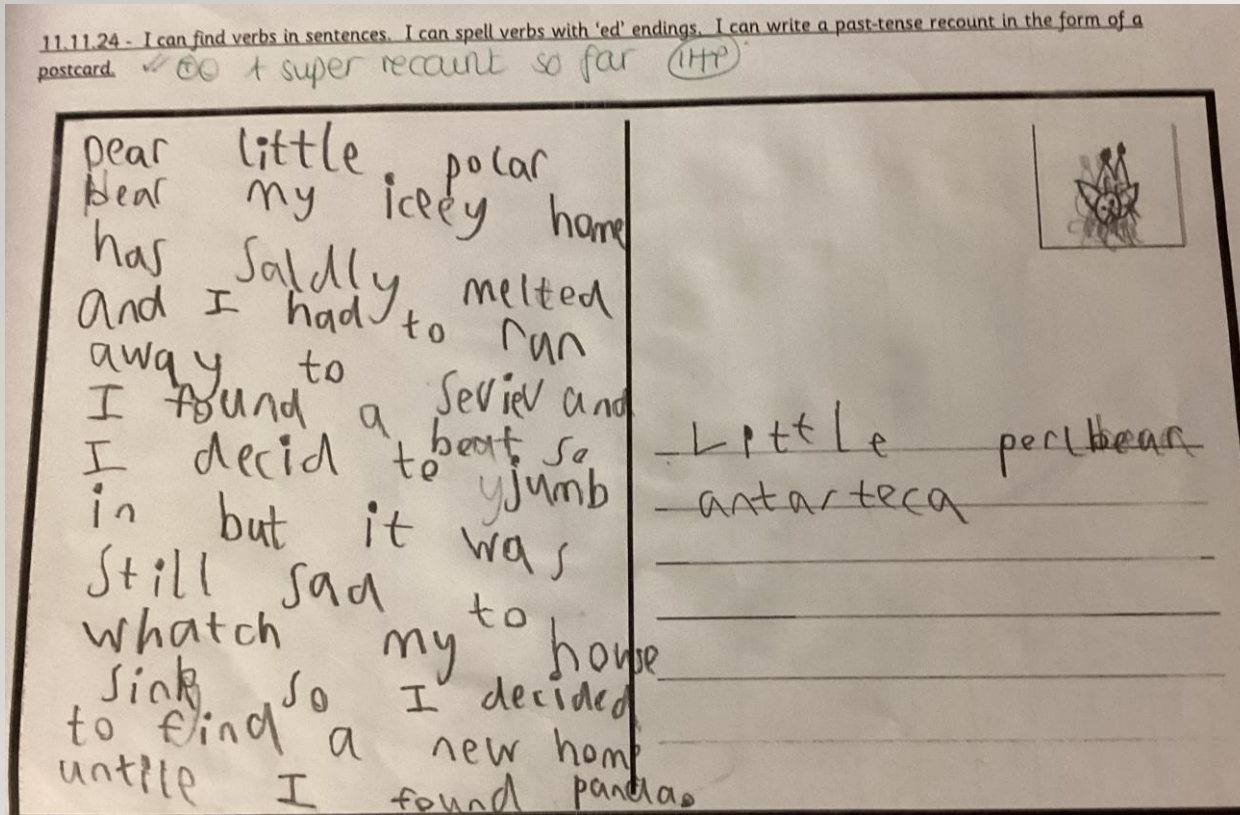 11.11.24 - I can find verbs in sentences. I can spell verbs with 'ed' endings. I can write a past-tense recount in the form of a
postcard. super recaunt so far 1HP
Dear little polar
bear my iceey home
has saldly melted
and I had to run
away to
I found a seviev and
I decid to boat so
yjumb
in but it was
still sad to
whatch my house
sink so I decided
to find a new home
untile I found panda.
Little perlbear
antarteca